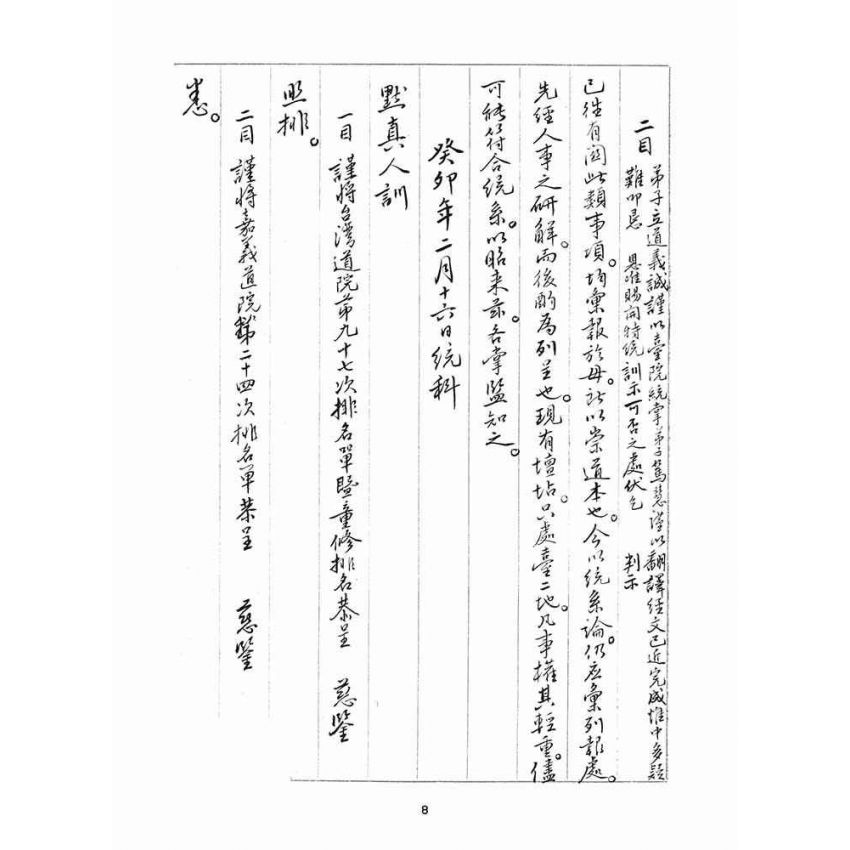 二目 弟子立道義誠謹以臺院統掌弟子篤慧謹以翻譯經文已近完成惟中多疑
難叩忌 思准賜開特統訓示可否之處伏乞 判示
已往有關此類事項。均彙報於母。所以崇道本也。今以統系論。仍应彙列報處。
先經人事之研解。而後酌為列呈也。現有壇坫。只處臺二地。凡事權其輕重。儘
可能符合統系。以昭来茲。各掌監知之。
癸卯年二月十六日統科
默真人訓
一目 謹將台灣道院第九十七次排名單暨童修排名恭呈 慈鑒
照排。
二目 謹將嘉義道院第二十四次排名單恭呈 慈鑒
悉。
8